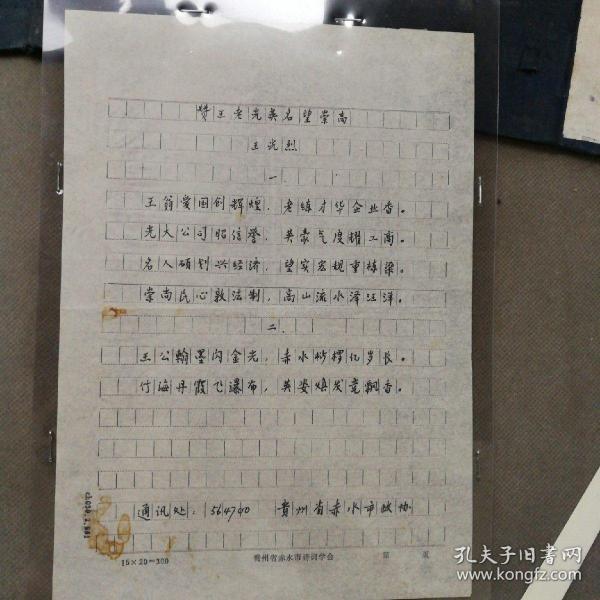 赞王老光英名望崇尚
王光烈
一.
王翁爱国创辉煌，老练才华企业香。
光大公司昭信誉，英豪气度耀工商。
名人硕划兴经济，望实宏规重栋梁。
崇尚民心敦法制，高山流水泽汪洋。
二.
王公翰墨闪金光，赤水桫椤亿岁长。
竹海丹霞飞瀑布，英姿焕发竞飘香。
通讯处：564700 贵州省赤水市政协
15×20=300 贵州省赤水市诗词学会 第 页
孔夫子旧书网
www.kongfz.com